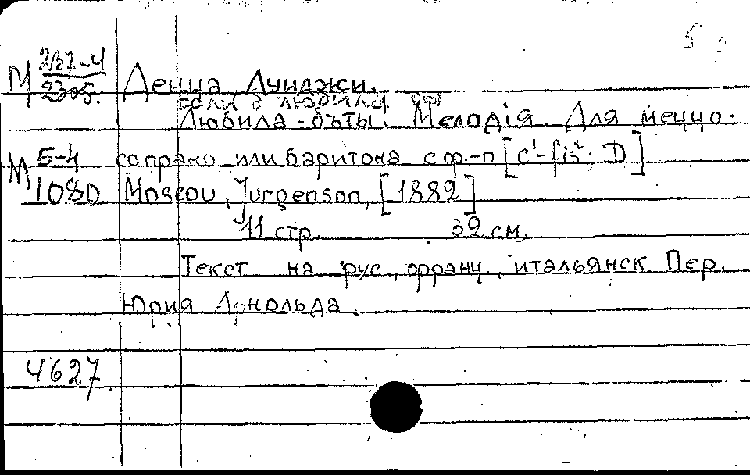 М 231-4 Денца, Луиджи.
2305. Если б любила
Любила-бъ ты. Мелодія. Для меццо-
М Б-4 сопрано или баритона с ф.-п [c¹-fis². D]
1080 Moscou, Jurgenson, [1882]
11 стр. 32 см.
Текст на рус., франц., итальянск Пер.
Юрия Арнольда.
4627.